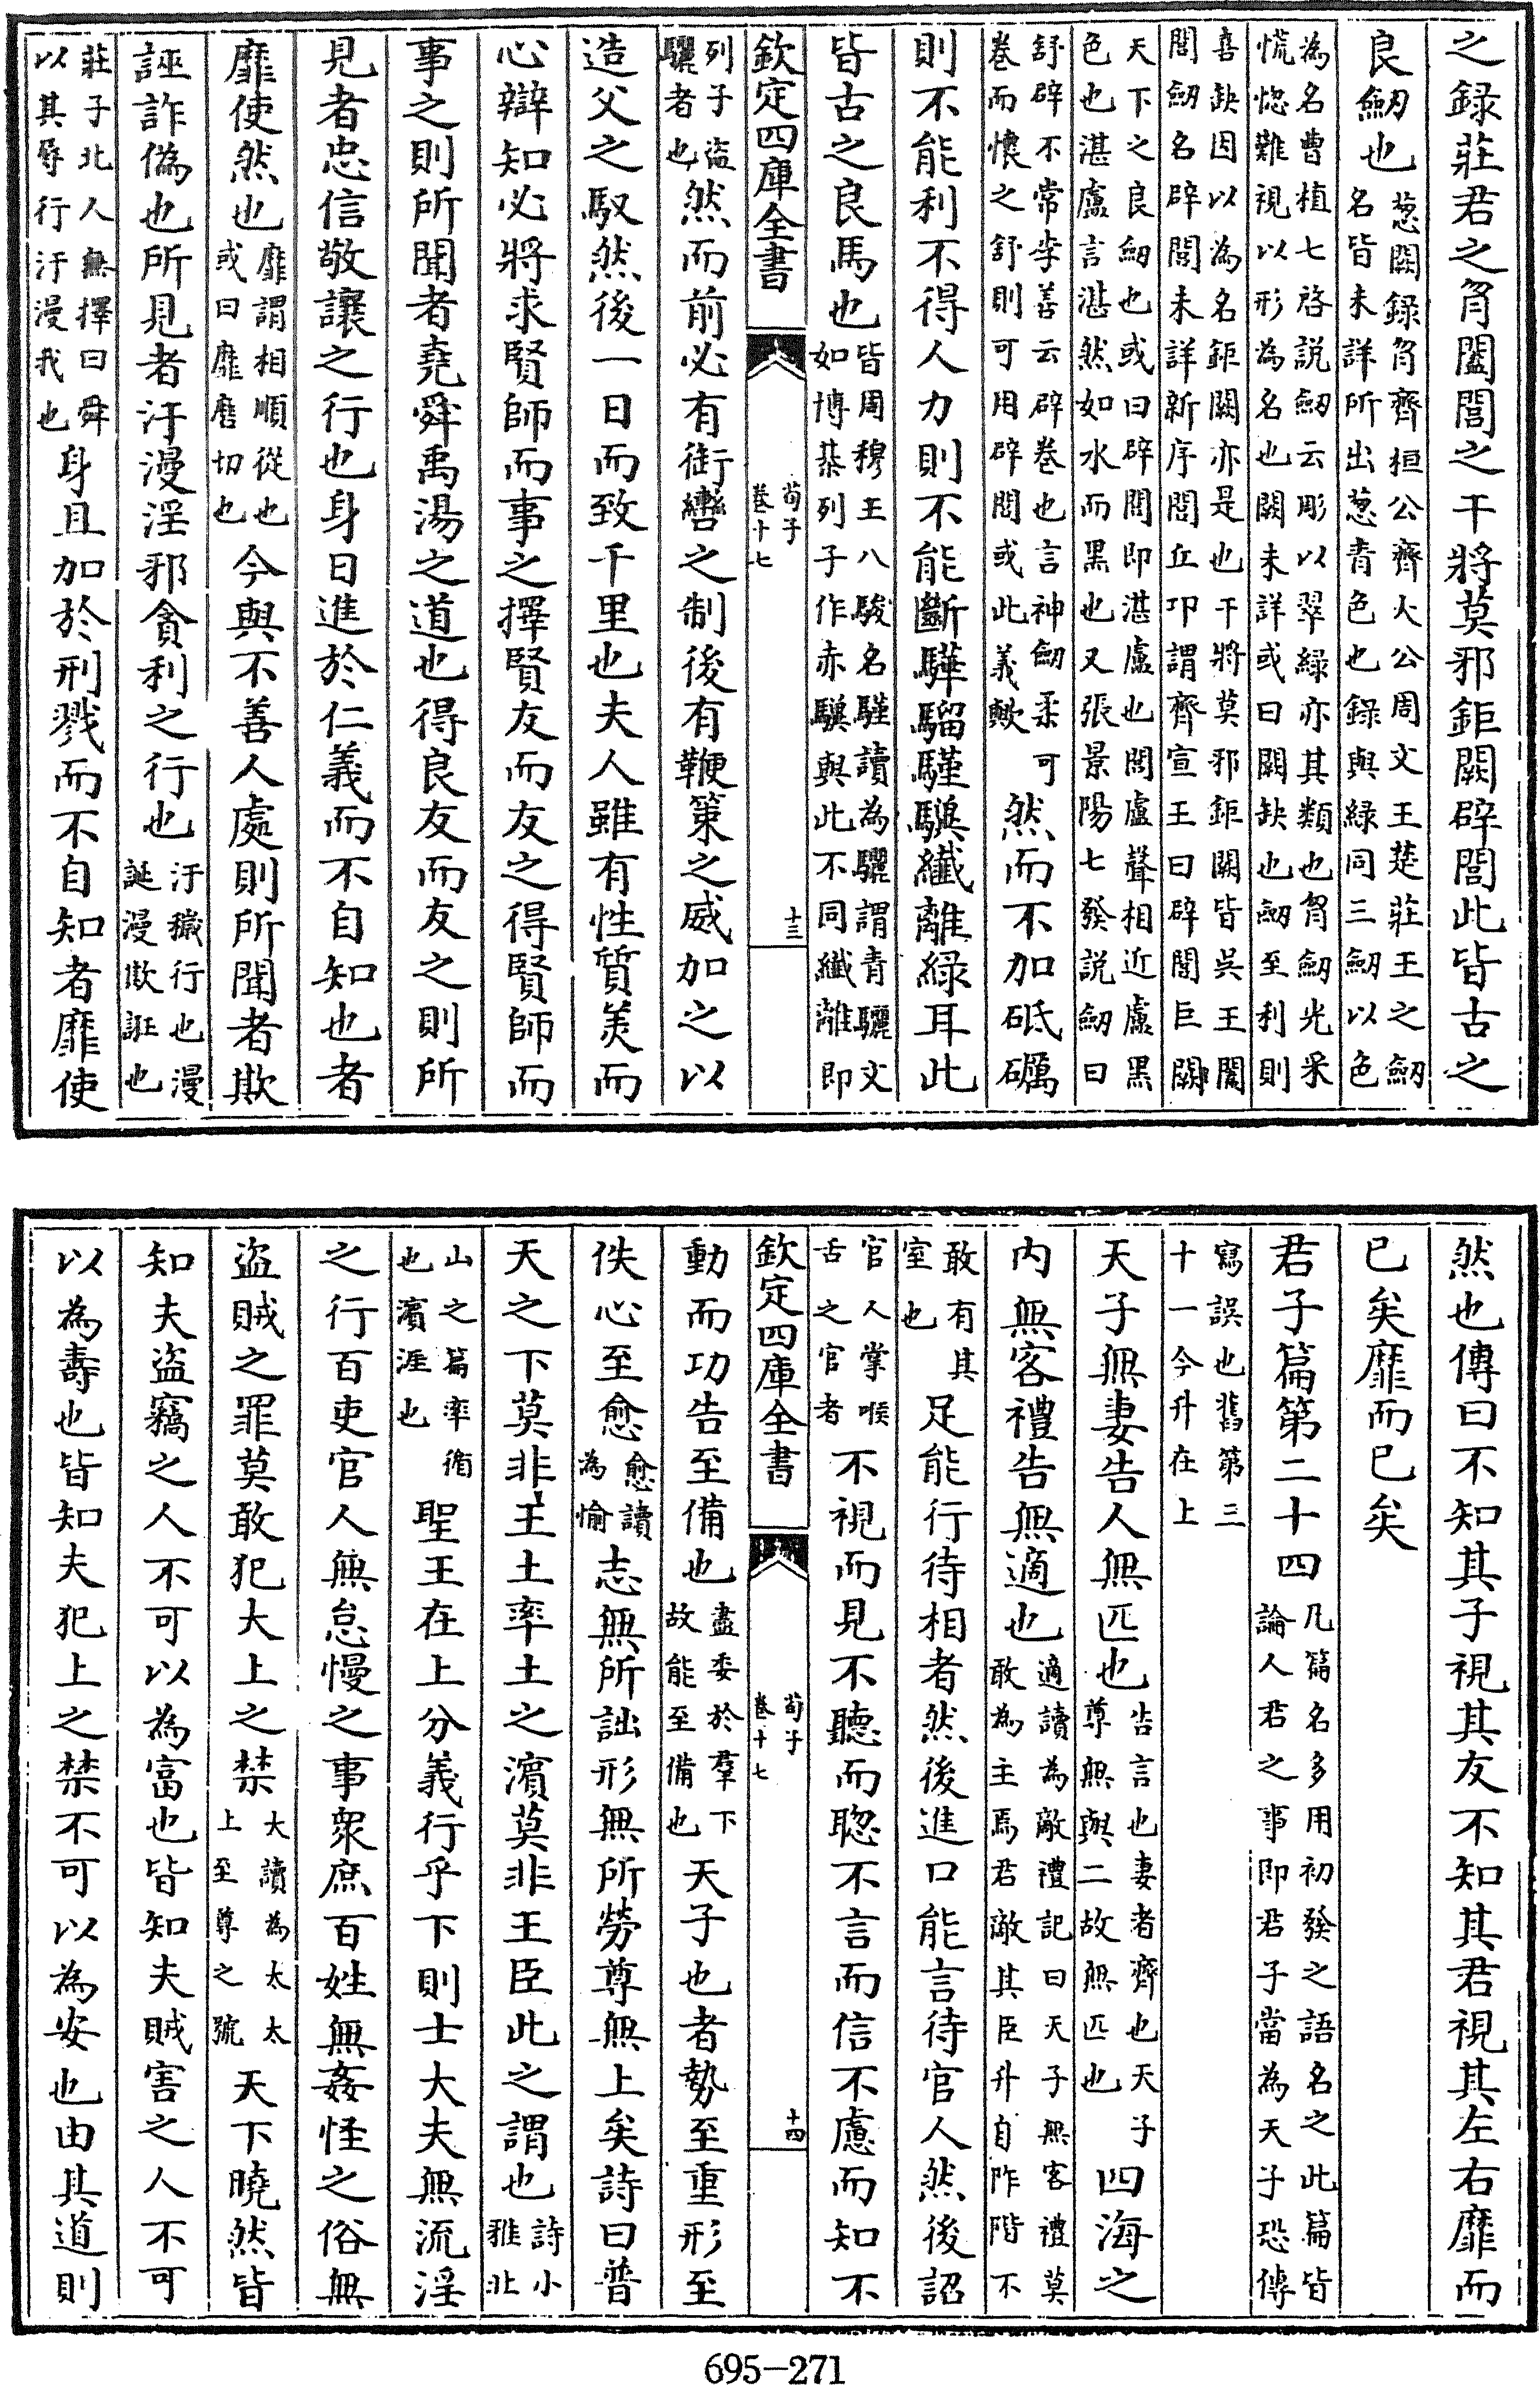 之録莊君之曶闔閭之干將莫邪鉅闕辟閭此皆古之
良劒也葱闕録曶齊桓公齊大公周文王楚莊王之劒名皆未詳所出葱青色也録與緑同三劒以色
為名曹植七啓説劒云彫以翠緑亦其類也曶劒光采慌惚難視以形為名也闕未詳或曰闕缺也劒至利則
喜缺因以為名鉅闕亦是也干將莫邪鉅闕皆吳王闔閭劒名辟閭未詳新序閭丘卭謂齊宣王曰辟閭巨闕
天下之良劒也或曰辟閭即湛盧也閭盧聲相近盧黑色也湛盧言湛然如水而黑也又張景陽七發説劒曰
舒辟不常李善云辟卷也言神劒柔可卷而懷之舒則可用辟閭或此義歟然而不加砥礪
則不能利不得人力則不能斷驊騮騹驥纖離緑耳此
皆古之良馬也皆周穆王八駿名騹讀為驪謂青驪文如博棊列子作赤驥與此不同纖離即
欽定四庫全書
荀子
卷十七
十三
列子盜驪者也然而前必有銜轡之制後有鞭策之威加之以
造父之馭然後一日而致千里也夫人雖有性質美而
心辯知必將求賢師而事之擇賢友而友之得賢師而
事之則所聞者堯舜禹湯之道也得良友而友之則所
見者忠信敬讓之行也身日進於仁義而不自知也者
靡使然也靡謂相順從也或曰靡磨切也今與不善人處則所聞者欺
誣詐偽也所見者汙漫淫邪貪利之行也汙穢行也漫誕漫欺誑也
莊子北人無擇曰舜以其辱行汙漫我也身且加於刑戮而不自知者靡使
然也傳曰不知其子視其友不知其君視其左右靡而
已矣靡而已矣
君子篇第二十四凡篇名多用初發之語名之此篇皆論人君之事即君子當為天子恐傳
寫誤也舊第三十一今升在上
天子無妻告人無匹也告言也妻者齊也天子尊無與二故無匹也四海之
内無客禮告無適也適讀為敵禮記曰天子無客禮莫敢為主焉君敵其臣升自阼階不
敢有其室也足能行待相者然後進口能言待官人然後詔
官人掌喉舌之官者不視而見不聽而聰不言而信不慮而知不
欽定四庫全書
荀子
卷十七
十四
動而功告至備也盡委於羣下故能至備也天子也者勢至重形至
佚心至愈愈讀為愉志無所詘形無所勞尊無上矣詩曰普
天之下莫非王土率土之濱莫非王臣此之謂也詩小雅北
山之篇率循也濱涯也聖王在上分義行乎下則士大夫無流淫
之行百吏官人無怠慢之事衆庶百姓無姦怪之俗無
盜賊之罪莫敢犯大上之禁大讀為太太上至尊之號天下曉然皆
知夫盜竊之人不可以為富也皆知夫賊害之人不可
以為壽也皆知夫犯上之禁不可以為安也由其道則
695-271